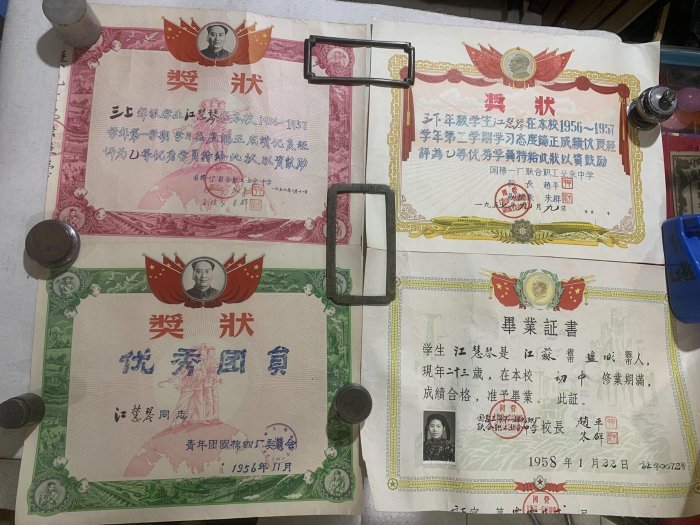 奖狀
三上年級学生江慧琴在本校1956～1957
学年第一期学习态度端正成绩优良經
評为乙等优秀学員特給此狀以資鼓励
国棉一厂联合职工业余中学
奖狀
三下年級学生江慧琴在本校1956～1957
学年第二学期学习态度端正成績优良經
評为乙等优秀学員特給此狀以資鼓励
国棉一厂联合职工业余中学
長 趙平
朱群
奖狀
优秀团員
江慧琴同志
青年团國棉四厂委員会
1956年11月
畢業証書
学生江慧琴是江蘇省鹽城縣人，
現年二十三歲，在本校初中修業期滿，
成績合格，准予畢業。此証。
学校長 趙平
朱群
1958年1月22日 証字0072号